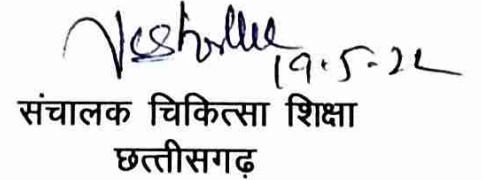 19.5-22
संचालक चिकित्सा शिक्षा
छत्तीसगढ़